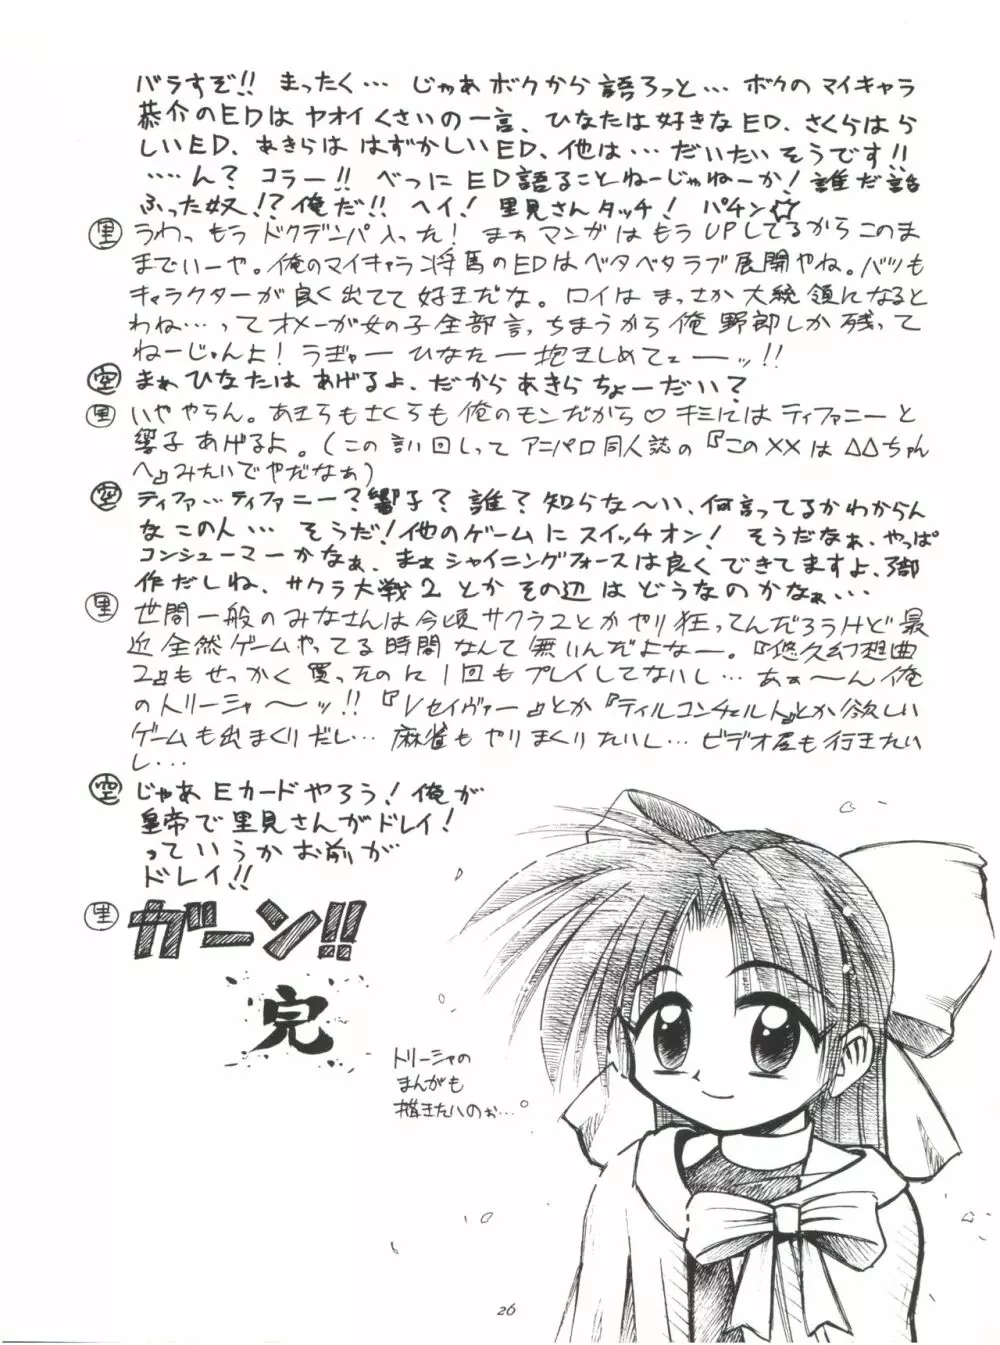 バラすぞ!! まったく… じゃあボクから語ろっと… ボクのマイキャラ
恭介のEDはヤオイくさいの一言、ひなたは好きなED、さくらはら
しいED、あきらははずかしいED、他は…だいたいそうです!!
……ん? コラー!! べつにED語ることねーじゃねーか! 誰だ話
ふった奴!? 俺だ!! ヘイ! 里見さんタッチ! パチン☆
里 うわっもうドクデンパ入った! まぁマンガはもうUPしてるからこのま
までいーや。俺のマイキャラ将馬のEDはベタベタラブ展開やね。バツも
キャラクターが良く出てて好きだな。ロイはまっさか大統領になるとは
わね…ってオメーが女の子全部言っちまうから俺野郎しか残って
ねーじゃんよ! うぎゃー ひなたー抱きしめてェーーッ!!
空 まぁひなたはあげるよ、だからあきらちょーだい?
里 いややらん。あきらもさくらも俺のモンだから♡ キミにはティファニーと
響子あげるよ。(この言い回しってアニパロ同人誌の『この××は△△ちゃん
へ』みたいでやだなぁ)
空 ティファ…ティファニー? 響子? 誰? 知らな〜い、何言ってるかわからん
なこの人… そうだ! 他のゲームにスイッチオン! そうだなぁ、やっぱ
コンシューマーかなぁ、まぁシャイニングフォースは良くできてますよ、3部
作だしね、サクラ大戦2とかその辺はどうなのかなぁ…
里 世間一般のみなさんは今頃サクラ2とかやり狂ってんだろうけど最
近全然ゲームやってる時間なんて無いんだよなー。『悠久幻想曲
2』もせっかく買ったのに1回もプレイしてないし… あぁ〜ん俺
のトリーシャ〜ッ!! 『Vセイヴァー』とか『ティルコンチェルト』とか欲しい
ゲームも出まくりだし… 麻雀もやりまくりたいし… ビデオ屋も行きたい
し…
空 じゃあEカードやろう! 俺が
皇帝で里見さんがドレイ!
っていうかお前が
ドレイ!!
里 ガーン!!
完
トリーシャの
まんがも
描きたいのぉ…。
26